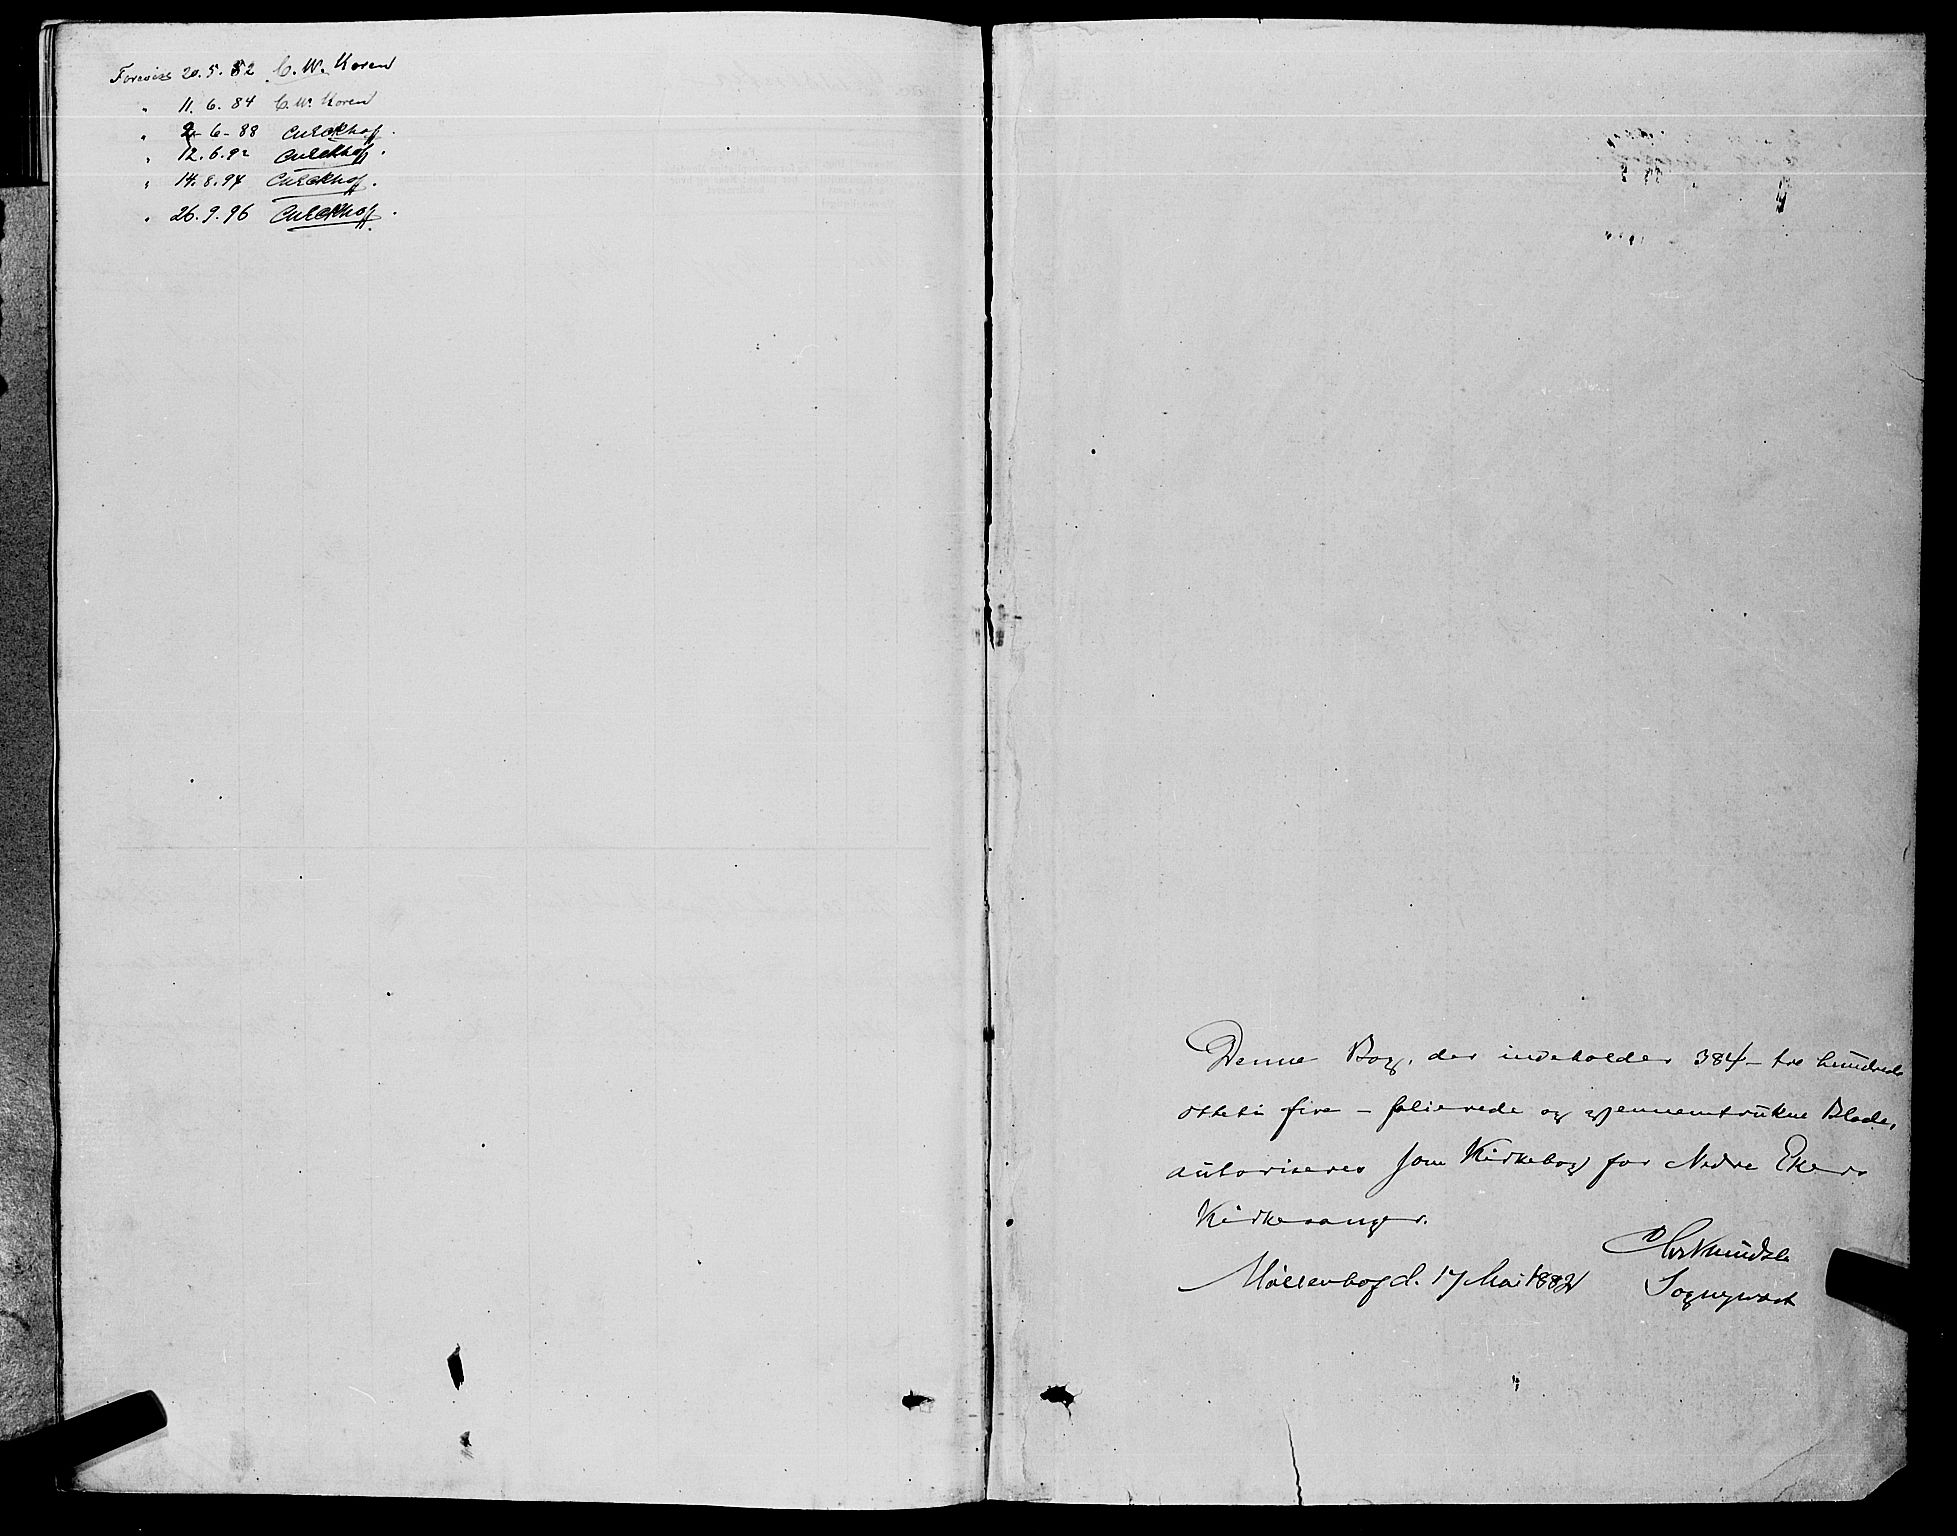 Forevist 20.5.82 C. W. Koren
" 11.6.84 C. W. Koren
" 2-6-88
" 12.6.92
" 14.8.94
" 26.9.96
Denne Bog, der indeholder 384 – tre hundrede
otteti fire – folierede og gjennemtrukne Blade,
autoriseres som Kirkebog for Nedre Ekers
Kirkesanger.
d. 17 Mai 1882
Sogneprest